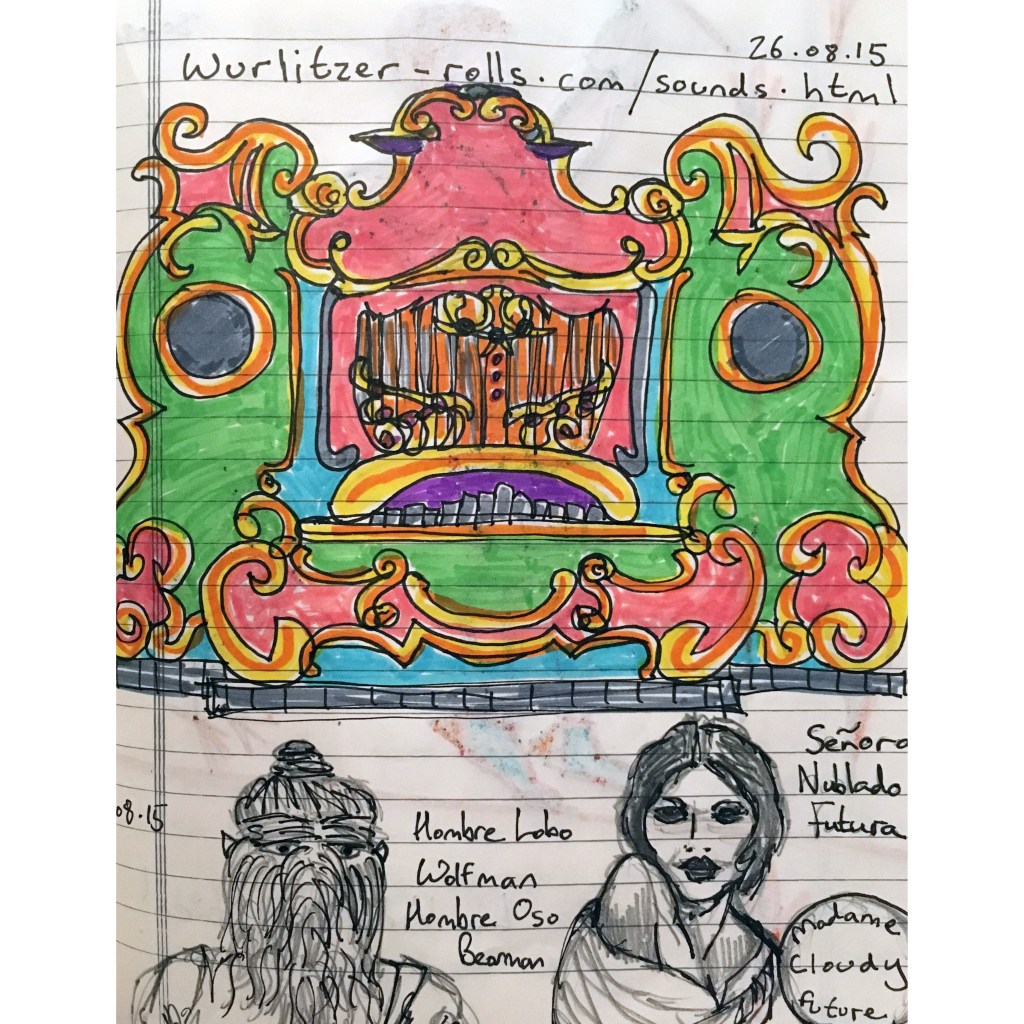 26.08.15
Wurlitzer-rolls.com/sounds.html
08.15
Hombre Lobo
Wolfman
Hombre Oso
Bearman
Señora
Nublado
Futura
Madame
Cloudy
future